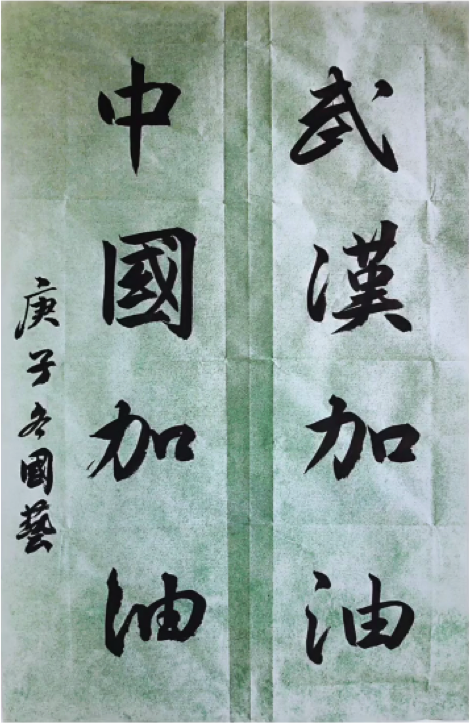 武漢加油
中國加油
庚子冬國藝